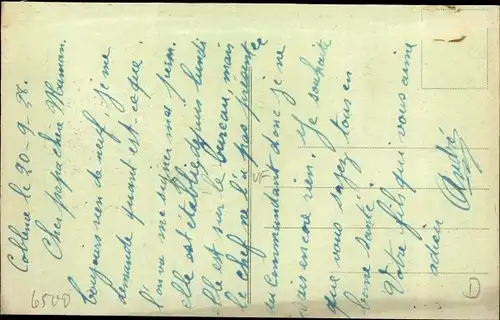 Coblence le 20-9-28.
Cher papa chère Maman.
Toujours rien de neuf, je me
demande quant est-ce que
l'on va me signer ma perm.
elle est établie depuis lundi
elle est sur le bureau, mais
le chef ne l'a pas présentée
au Commandant donc je ne
sais encore rien. Je souhaite
que vous soyez tous en
bonne santé.
Votre fils qui vous aime
adieu André
VF
6500